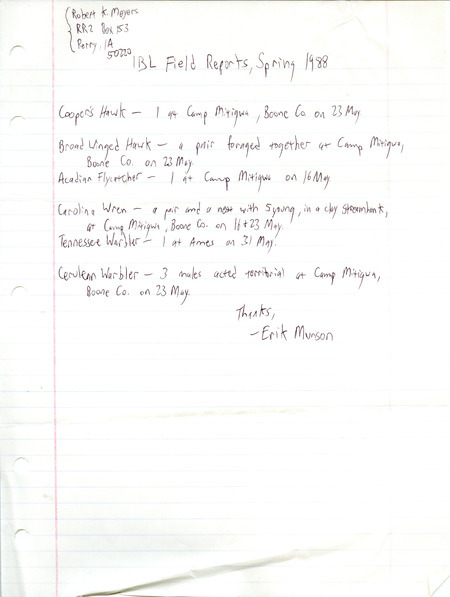 Robert K. Meyers
RR2 Box 153
Perry, IA
50220
IBL Field Reports, Spring 1988
Cooper's Hawk - 1 at Camp Mitigwa, Boone Co. on 23 May.
Broad Winged Hawk - a pair foraged together at Camp Mitigwa,
Boone Co. on 23 May.
Acadian Flycatcher - 1 at Camp Mitigwa on 16 May.
Carolina Wren - a pair and a nest with 5 young, in a clay streambank,
at Camp Mitigwa, Boone Co. on 16+23 May.
Tennessee Warbler - 1 at Ames on 31 May.
Cerulean Warbler - 3 males acted territorial at Camp Mitigwa,
Boone Co. on 23 May.
Thanks,
- Erik Munson